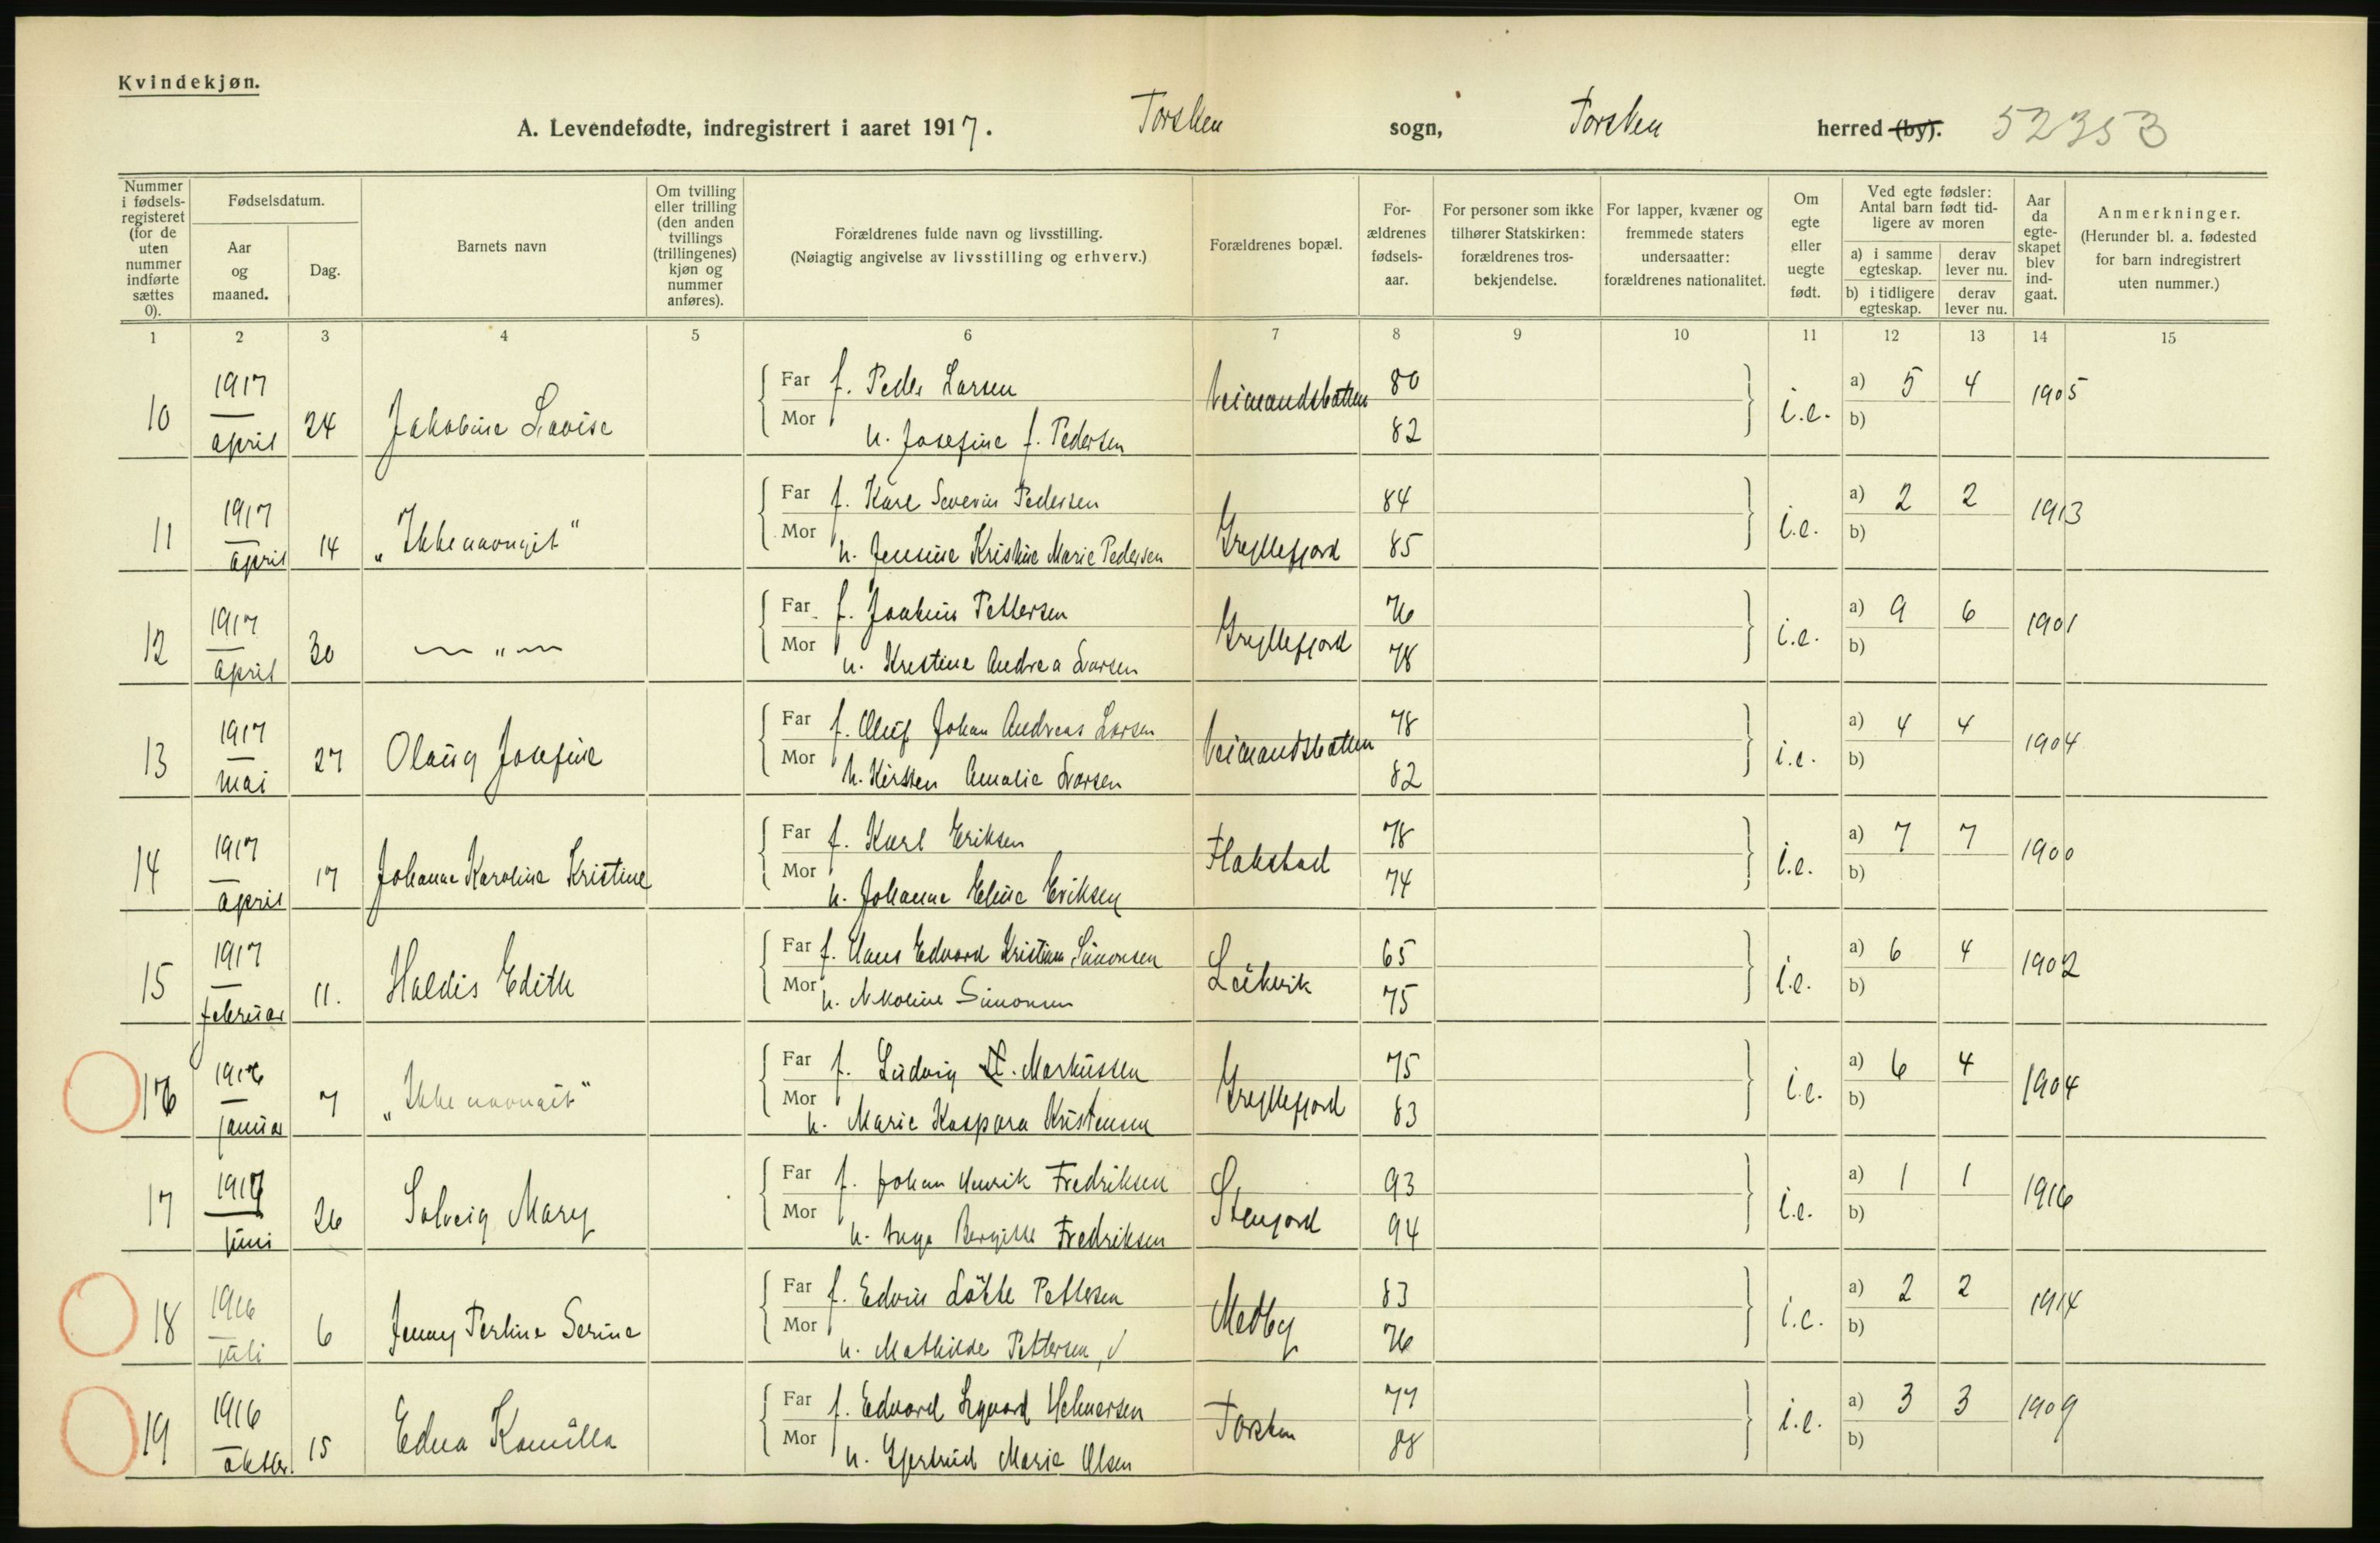 Kvindekjøn.
A. Levendefødte, indregistrert i aaret 1917. Torsken sogn, Torsken herred (by). 52353
Nummer i fødselsregisteret (for de uten nummer indførte sættes 0).
Fødselsdatum.
Aar og maaned.
Dag.
Barnets navn
Om tvilling eller trilling (den anden tvillings (trillingenes) kjøn og nummer anføres).
Forældrenes fulde navn og livsstilling.
(Nøiagtig angivelse av livsstilling og erhverv.)
Forældrenes bopæl.
Forældrenes fødselsaar.
For personer som ikke tilhører Statskirken: forældrenes trosbekjendelse.
For lapper, kvæner og fremmede staters undersaatter: forældrenes nationalitet.
Om egte eller uegte født.
Ved egte fødsler: Antal barn født tidligere av moren
a) i samme egteskap. derav lever nu.
b) i tidligere egteskap. derav lever nu.
Aar da egteskapet blev indgaat.
Anmerkninger.
(Herunder bl. a. fødested for barn indregistrert uten nummer.)
1 2 3 4 5 6 7 8 9 10 11 12 13 14 15
10 1917 april 24 Jakobine Lovise Far f. Peder Larsen 80 i.e. a) 5 4 1905
Mor h. Josefine f. Pedersen 82 b)
11 1917 april 14 „Ikke navngit" Far f. Kare Severin Pedersen Gryllefjord 84 i.e. a) 2 2 1913
Mor h. Jensine Kristine Marie Pedersen 85 b)
12 1917 april 30 — „ — Far f. Joakim Pettersen Gryllefjord 76 i.e. a) 9 6 1901
Mor h. Kristine Andrea Larsen 78 b)
13 1917 mai 27 Olaug Josefine Far f. Oluf Johan Andreas Larsen 78 i.e. a) 4 4 1904
Mor h. Kirsten Amalie Larsen 82 b)
14 1917 april 17 Johanne Karoline Kristine Far f. Karl Eriksen Flakstad 78 i.e. a) 7 7 1900
Mor h. Johanne Eline Eriksen 74 b)
15 1917 februar 11. Haldis Edith Far f. Hans Edvard Kristian Simonsen Leikvik 65 i.e. a) 6 4 1902
Mor h. Nikoline Simonsen 75 b)
16 1916 januar 7 „Ikke navngit" Far f. Ludvig Markussen Gryllefjord 75 i.e. a) 6 4 1904
Mor h. Marie Kaspara Kristensen 83 b)
17 1917 juni 26 Solveig Mary Far f. Johan Henrik Fredriksen Stenfjord 93 i.e. a) 1 1 1916
Mor h. Inga Bergitte Fredriksen 94 b)
18 1916 juli 6 Jenny Perline Serine Far f. Edvin Pettersen Medby 83 i.e. a) 2 2 1914
Mor h. Mathilde Pettersen 76 b)
19 1916 oktbr. 15 Edna Kamilla Far f. Edvard Sigvard Helmersen Torsken 77 i.e. a) 3 3 1909
Mor h. Gjertrud Marie Olsen 88 b)